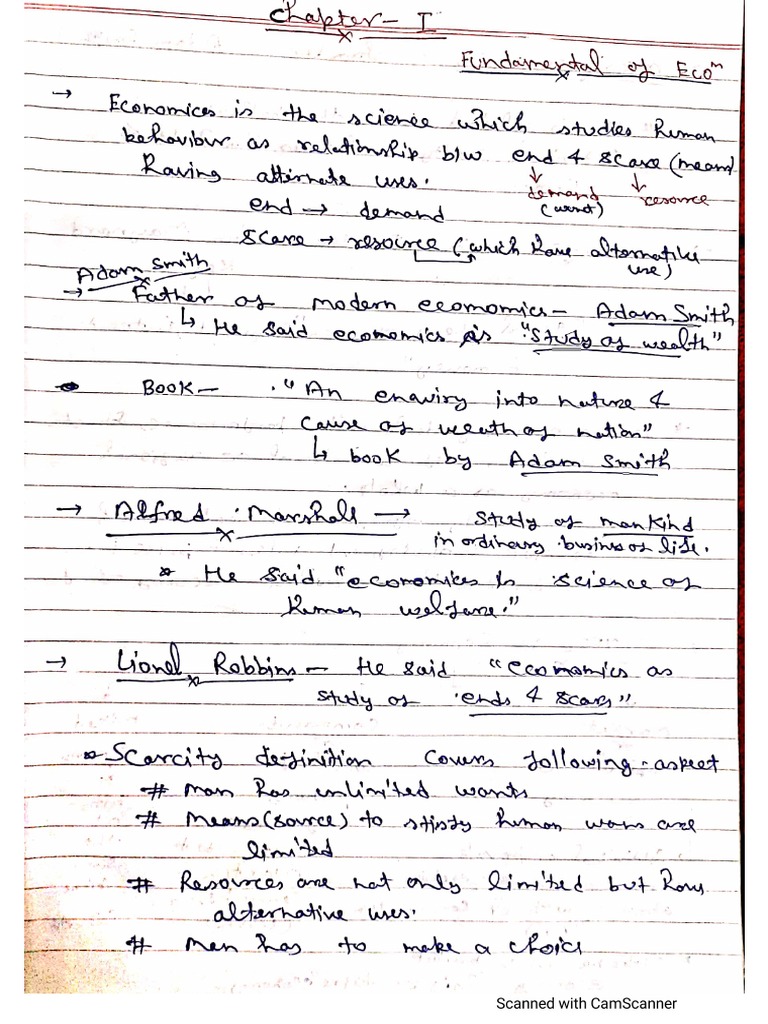 Chapter - I
Fundamental of Ecoᵐ
→ Economics is the science which studies human
behaviour as relationship b/w end & scare (mean)
having alternate uses.
demand resource
(want)
end → demand
scare → resource (which have alternative
use)
Adam Smith
→ Father of modern economics - Adam Smith
↳ He said economics is "study of wealth"
Book - "An enquiry into nature &
cause of wealth of nation"
↳ book by Adam Smith
→ Alfred Marshall → study of mankind
in ordinary business of life.
* He said "economics is science of
human welfare."
→ Lionel Robbins - He said "economics as
study of ends & scars"
* Scarcity definition covers following aspect
# man has unlimited wants
# Means (source) to stisty human wans are
limited
# Resources are not only limited but hav
alternative uses.
# Man has to make a choice
Scanned with CamScanner